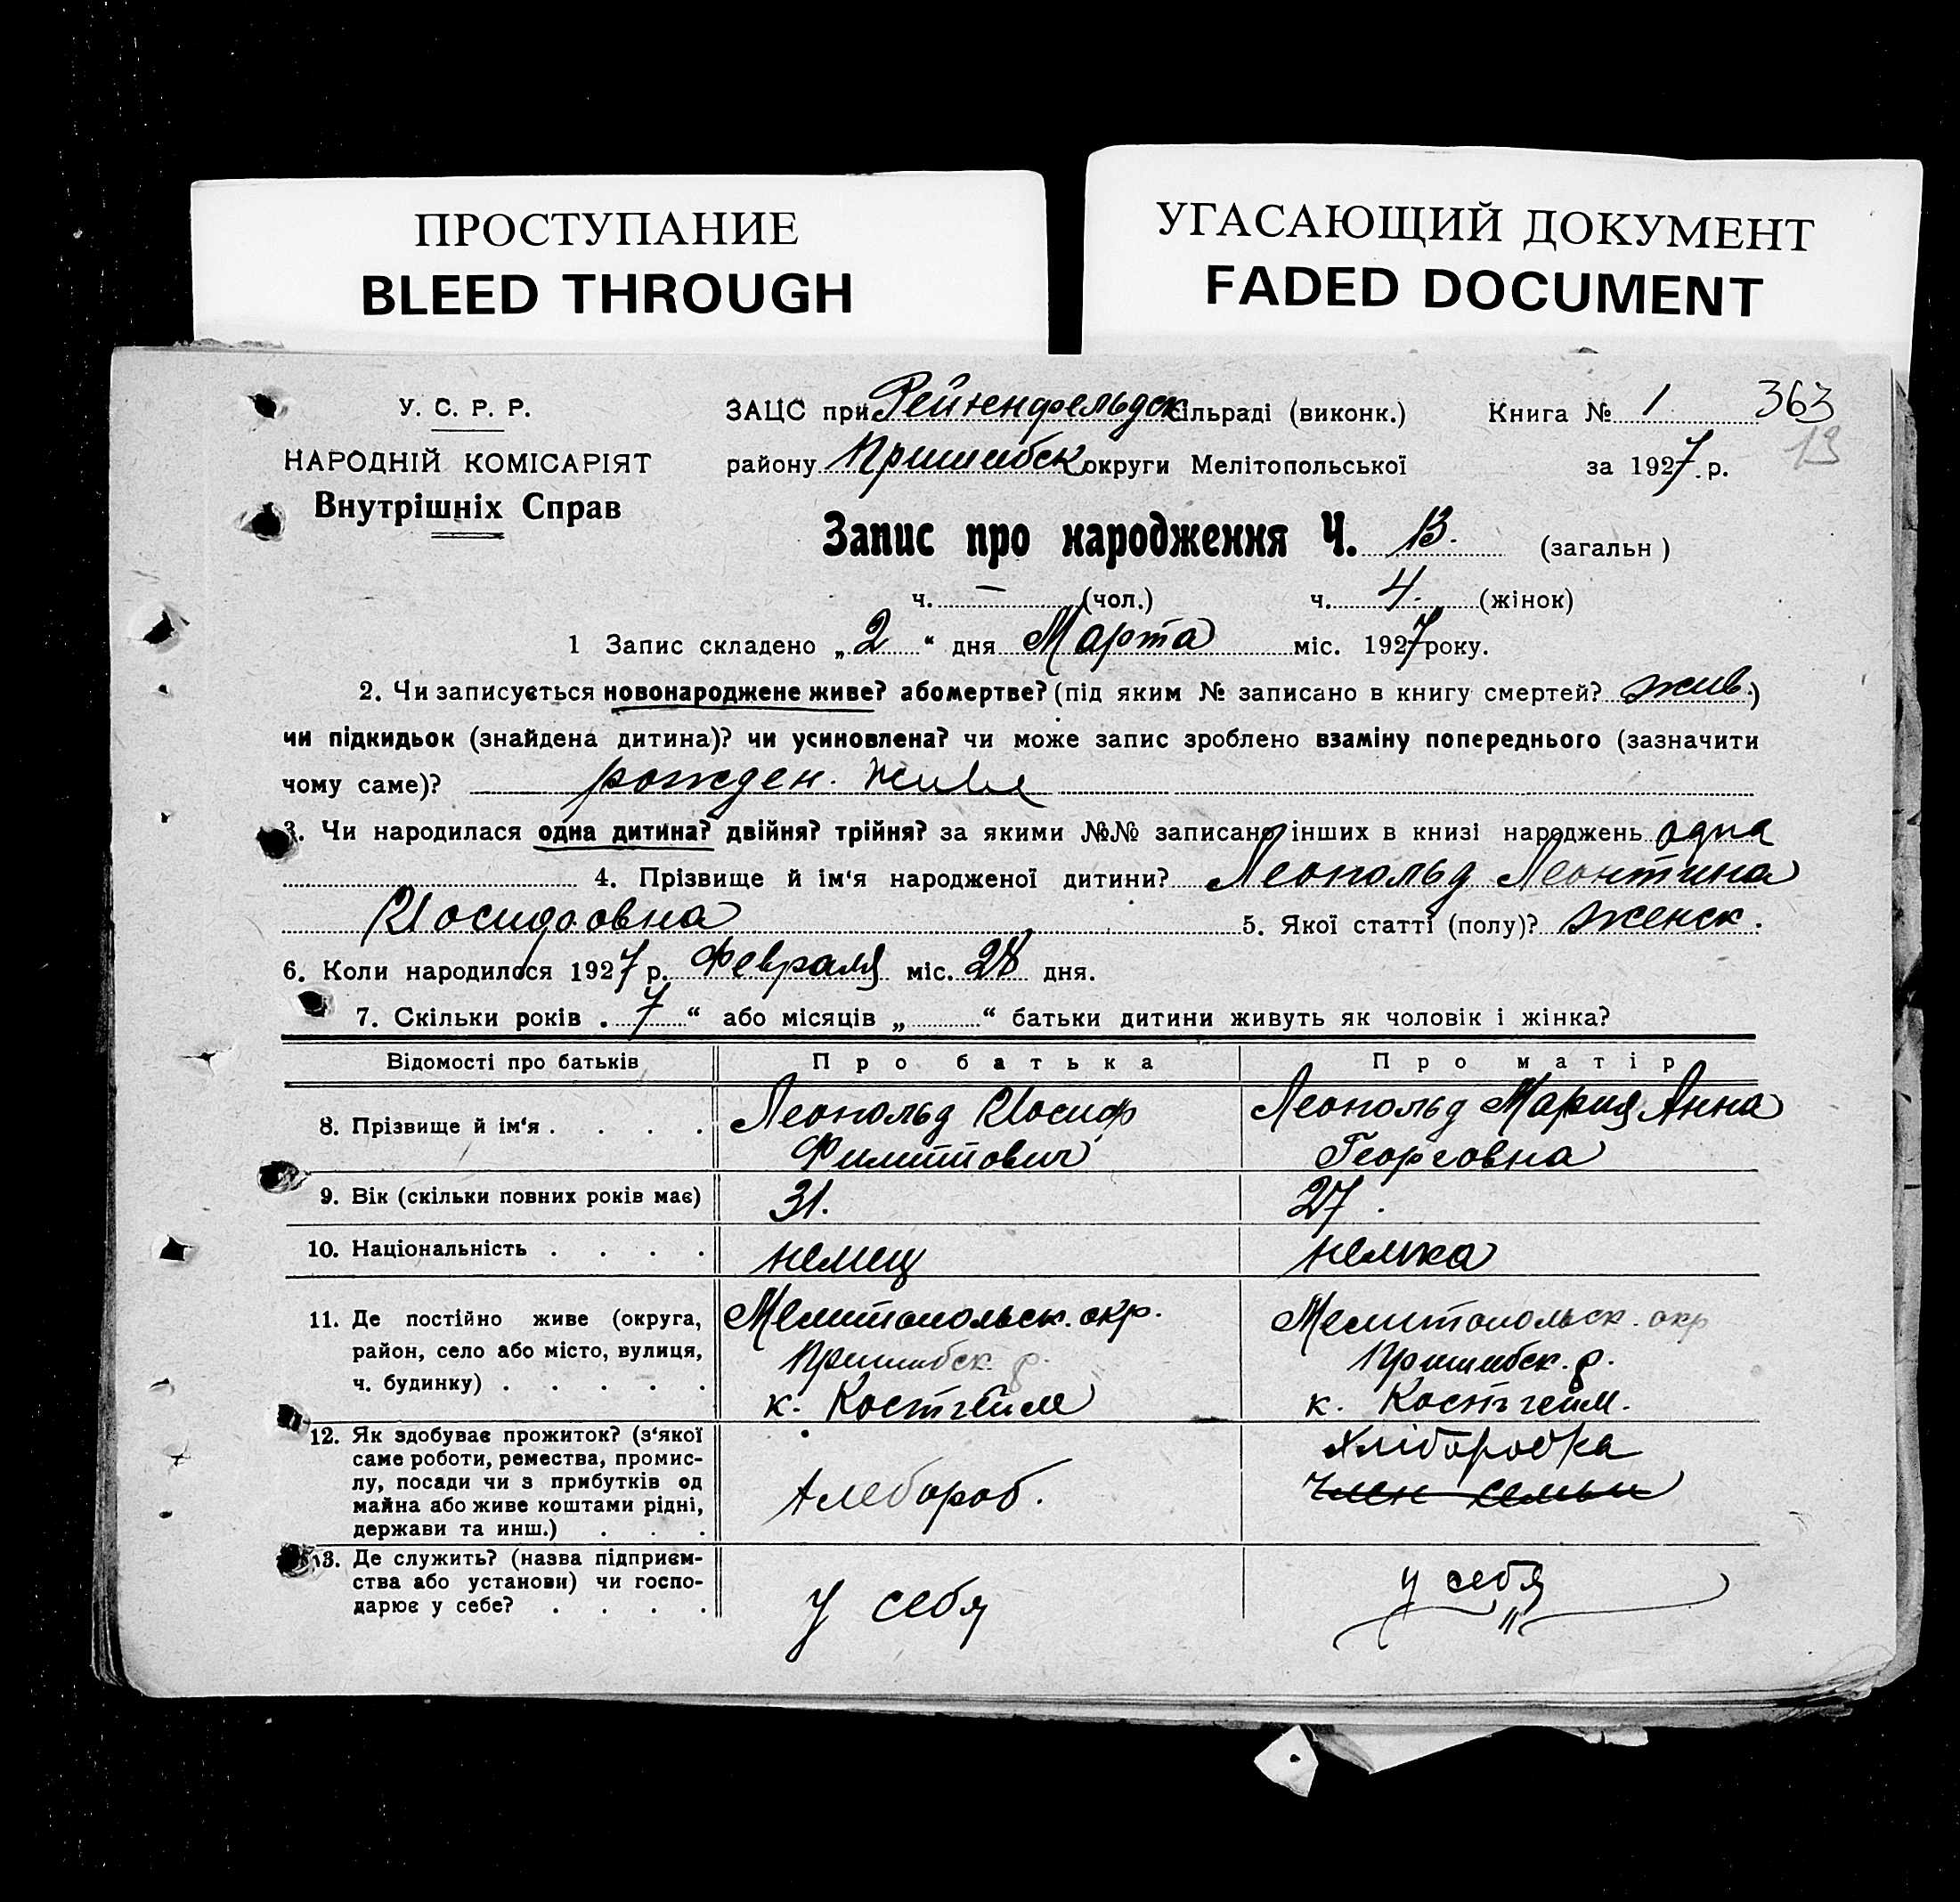 ПРОСТУПАНИЕ
BLEED THROUGH
УГАСАЮЩИЙ ДОКУМЕНТ
FADED DOCUMENT
У. С. Р. Р.
НАРОДНІЙ КОМІСАРІЯТ
Внутрішніх Справ
ЗАЦС при Рейхенфельдск сільраді (виконк.) Книга № 1 363
району Пришибск округи Мелітопольської за 1927 р. 13
Запис про народження Ч. 13. (загальн)
ч. — (чол.) ч. 4. (жінок)
1 Запис складено „2“ дня Марта міс. 1927 року.
2. Чи записується новонароджене живе? або мертве? (під яким № записано в книгу смертей? жив.)
чи підкидьок (знайдена дитина)? чи усиновлена? чи може запис зроблено взаміну попереднього (зазначити
чому саме)? рожден. живе
3. Чи народилася одна дитина? двійня? трійня? за якими №№ записано інших в книзі народжень одна
4. Прізвище й ім'я народженої дитини? Леопольд Леонтина
Иосифовна 5. Якої статті (полу)? женск.
6. Коли народилося 1927 р. Февраля міс. 28 дня.
7. Скільки років „7“ або місяців „ “ батьки дитини живуть як чоловік і жінка?
Відомості про батьків Про батька Про матір
8. Прізвище й ім'я . . . . Леопольд Иосиф Филиппович Леопольд Мария Анна Георговна
9. Вік (скільки повних років має) 31. 27.
10. Національність . . . . немец немка
11. Де постійно живе (округа, Мелитопольск. окр. Мелитопольск. окр
район, село або місто, вулиця, Пришибск. р. Пришибск. р.
ч. будинку) . . . . . к. Костгейм к. Костгейм.
12. Як здобуває прожиток? (з'якої Хліборобка
саме роботи, ремества, промис-
лу, посади чи з прибутків од Хлебороб. член семьи
майна або живе коштами рідні,
держави та инш.) . . .
13. Де служить? (назва підприєм- у себя
ства або установи) чи госпо-
дарює у себе? . . . . у себя